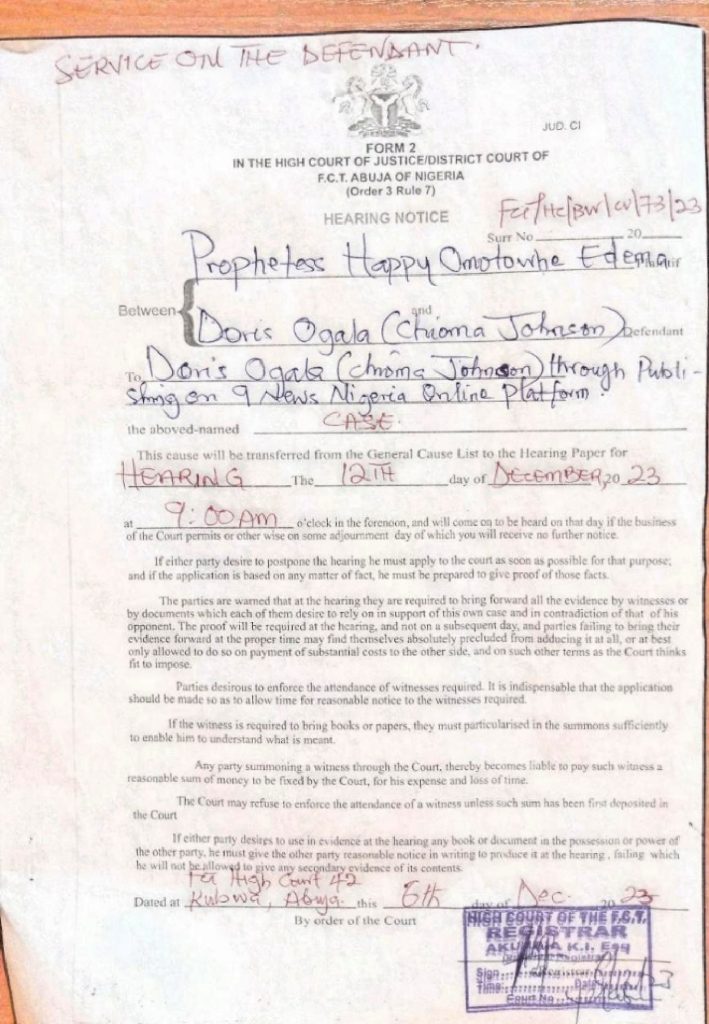 SERVICE ON THE DEFENDANT.
JUD. CI
FORM 2
IN THE HIGH COURT OF JUSTICE/DISTRICT COURT OF
F.C.T. ABUJA OF NIGERIA
(Order 3 Rule 7)
HEARING NOTICE
FCT/HC/BW/CV/73/23
Surr No 20
Prophetess Happy Omotowhe Edema
Between
and
Doris Ogala (Chioma Johnson) Defendant
To Doris Ogala (Chioma Johnson) through Publi-
shing on 9 News Nigeria Online Platform.
the aboved-named CASE.
This cause will be transferred from the General Cause List to the Hearing Paper for
HEARING The 12TH day of DECEMBER, 20 23
at 9:00AM o'clock in the forenoon, and will come on to be heard on that day if the business
of the Court permits or other wise on some adjournment day of which you will receive no further notice.
If either party desire to postpone the hearing he must apply to the court as soon as possible for that purpose;
and if the application is based on any matter of fact, he must be prepared to give proof of those facts.
The parties are warned that at the hearing they are required to bring forward all the evidence by witnesses or
by documents which each of them desire to rely on in support of this own case and in contradiction of that of his
opponent. The proof will be required at the hearing, and not on a subsequent day, and parties failing to bring their
evidence forward at the proper time may find themselves absolutely precluded from adducing it at all, or at best
only allowed to do so on payment of substantial costs to the other side, and on such other terms as the Court thinks
fit to impose.
Parties desirous to enforce the attendance of witnesses required. It is indispensable that the application
should be made so as to allow time for reasonable notice to the witnesses required.
If the witness is required to bring books or papers, they must particularised in the summons sufficiently
to enable him to understand what is meant.
Any party summoning a witness through the Court, thereby becomes liable to pay such witness a
reasonable sum of money to be fixed by the Court, for his expense and loss of time.
The Court may refuse to enforce the attendance of a witness unless such sum has been first deposited in
the Court
If either party desires to use in evidence at the hearing any book or document in the possession or power of
the other party, he must give the other party reasonable notice in writing to produce it at the hearing , failing which
he will not be allowed to give any secondary evidence of its contents.
FCT High Court 42
Dated at Kubwa, Abuja. this 6th day of Dec. 20 23
By order of the Court
HIGH COURT OF THE F.C.T.
REGISTRAR
K.I. Esq
Sign
Time: Date
Court No